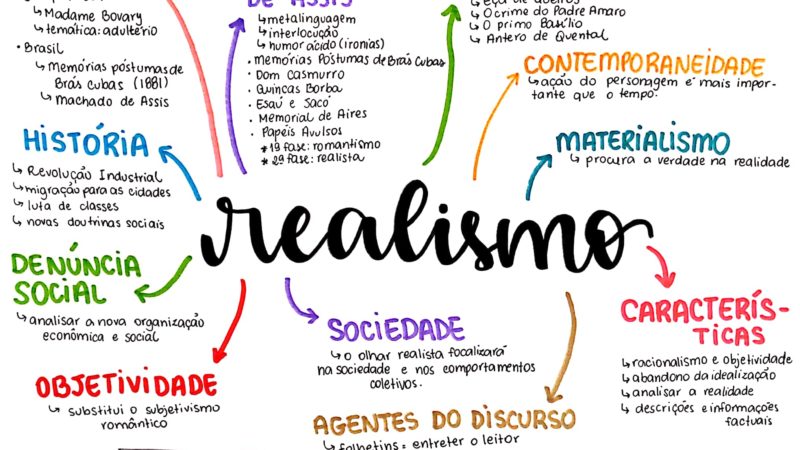 ↳ Madame Bovary
↳ temática: adultério
• Brasil
↳ Memórias póstumas de
Brás Cubas (1881)
↳ Machado de Assis
DE ASSIS
↳ metalinguagem
↳ interlocução
↳ humor ácido (ironias)
• Memórias Póstumas de Brás Cubas
• Dom Casmurro
• Quincas Borba
• Esaú e Jacó
• Memorial de Aires
• Papéis Avulsos
* 1ª fase: romantismo
* 2ª fase: realista
↳ O crime do Padre Amaro
↳ O primo Basílio
↳ Antero de Quental
CONTEMPORANEIDADE
↳ ação do personagem é mais impor-
tante que o tempo.
MATERIALISMO
↳ procura a verdade na realidade
HISTÓRIA
↳ Revolução Industrial
↳ migração para as cidades
↳ luta de classes
↳ novas doutrinas sociais
realismo
DENÚNCIA
SOCIAL
↳ analisar a nova organização
econômica e social
OBJETIVIDADE
↳ substitui o subjetivismo
romântico
SOCIEDADE
↳ o olhar realista focalizará
na sociedade e nos comportamentos
coletivos.
AGENTES DO DISCURSO
↳ folhetins = entreter o leitor
CARACTERÍS-
TICAS
↳ racionalismo e objetividade
↳ abandono da idealização
↳ analisar a realidade
↳ descrições e informações
factuais